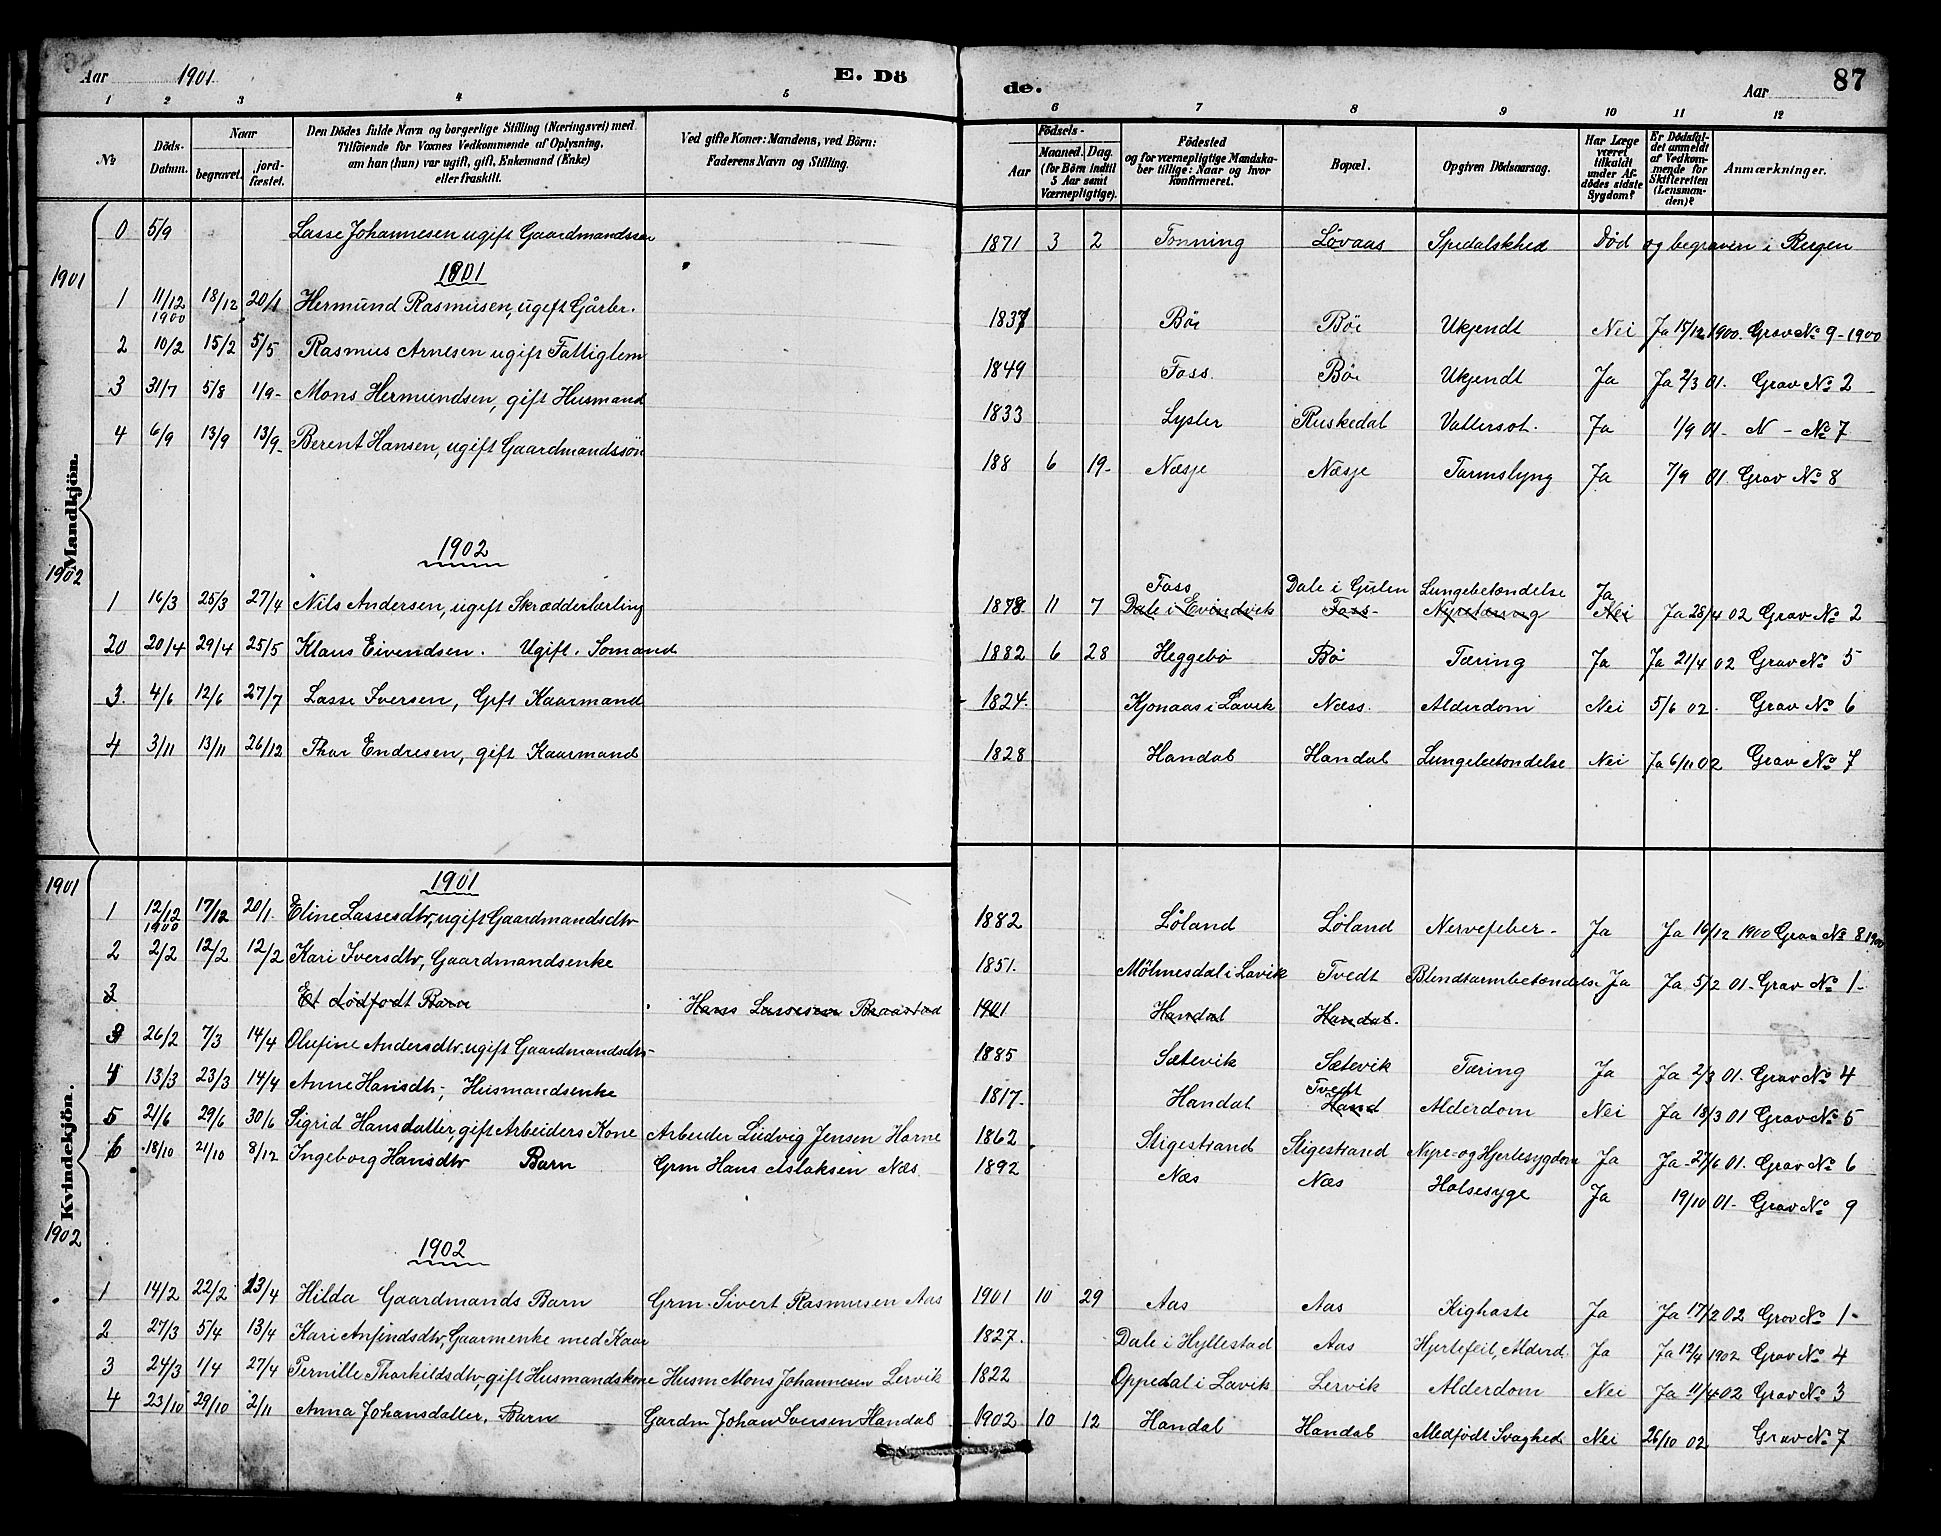 Aar 1901 E. Dö de. Aar 87
1 2 3 4 5 6 7 8 9 10 11 12
No Döds-Datum. Naar begravet. jord-fæstet. Den Dödes fulde Navn og borgerlige Stilling (Næringsvei) med Tilföiende for Voxnes Vedkommende af Oplysning, om han (hun) var ugift, gift, Enkemand (Enke) eller fraskilt. Ved gifte Koner: Mandens, ved Börn: Faderens Navn og Stilling. Födsels- Aar Maaned. Dag. (for Börn indtil 5 Aar samt Værnepligtige). Födested og for værnepligtige Mandska-ber tillige: Naar og hvor konfirmeret. Bopæl. Opgiven Dödsaarsag. Har Læge været tilkaldt under Af-dödes sidste Sygdom? Er Dödsfal-det anmeldt af Vedkom-mende for Skifteretten (Lensman-den)? Anmærkninger.
Mandkjön.
0 5/9 Lasse Johannesen ugift Gaardmandssøn 1871 3 2 Tonning Løvaas Spedalskhed Død og begraven i Bergen
1901 1901
1 11/12 1900 18/12 20/1 Hermund Rasmusen, ugift Gårbr. 1837 Böe Böe Ukjendt Nei Ja 15/12 1900. Grav No 9 - 1900
2 10/2 15/2 5/5 Rasmus Arnesen ugift Fattiglem 1849 Foss. Böe Ukjendt Ja Ja 2/3 01. Grav No 2
3 31/7 5/8 1/9- Mons Hermundsen, gift Husmand 1833 Lyster Ruskedal Vattersot. Ja 1/9 01. N - No 7
4 6/9 13/9 13/9- Berent Hansen, ugift Gaardmandssön 188 6 19- Næsje Næsje Tarmslyng Ja 7/9 01 Grav No 8
1902 1902
1 16/3 25/3 27/4 Nils Andersen, ugift Skrædderlærling 1878 11 7 Foss Dale i Evindvik Dale i Gulen Foss- Lungebetendelse Nyretæring Ja Nei Ja 28/4 02 Grav No 2
20 20/4 29/4 25/5 Klaus Eivendsen. Ugift. Somand 1882 6 28 Heggebø Bø Tæring Ja Ja 21/4 02 Grav No 5
3. 4/6 12/6 27/7 Lasse Iversen, Gift Kaarmand 1824. Kjonaas i Lavik Næss. Alderdom Nei 5/6 02. Grav No 6
4 3/11 13/11 26/12 Thor Endresen, gift Kaarmand 1828 Handal Handal Lungebetendelse Nei Ja 6/11 02 Grav No 7
Kvindekjön.
1901 1901
1 12/12 1900 17/12 20/1. Eline Lassesdtr, ugift Gaardmandsdtr 1882 Løland Løland Nervefeber- Ja Ja 16/12 1900 Grav No 8 1900
2 2/2 12/2 12/2 Kari Iversdtr, Gaardmandsenke 1851. Mölmesdal i Lavik Tvedt Blindtarmbetændelse Ja Ja 5/2 01- Grav No 1-
3 Et dødfødt Barn Hans Lassesen Braastad 1901 Handal Handal.
3 26/2 7/3 14/4 Olufine Andersdtr ugift Gaardmandsdtr 1885 Sætevik Sætevik Tæring Ja Ja 2/3 01. Grav No 4
4 13/3 23/3 14/4 Anne Hansdtr, Husmandsenke 1817. Handal Tvedt Hand Alderdom Nei Ja 18/3 01 Grav No 5
5 21/6 29/6 30/6 Sigrid Hansdatter gift Arbeiders Kone Arbeider Ludvig Jensen Horne 1862 Stigestrand Stigestrand Nyre- og Hjertesygdom Ja Ja- 27/6 01. Grav No 6
6 18/10 21/10 8/12 Ingeborg Hansdtr Barn Grm Hans Aslaksen Næs. 1892 Næs Næs Halsesyge Ja 19/10 01- Grav No 9
1902 1902
1 14/2 22/2 13/4 Hilda Gaardmands Barn Grm. Sivert Rasmusen Aas 1901 10 29 Aas Aas Kighoste Ja Ja 17/2 02 Grov No 1-
2 27/3 5/4 13/4 Kari Anfindsdtr, Gaarmenke med Kaar 1827. Dale i Hyllestad Aas Hjertefeil, Alderd. Ja Ja 12/4 1902 Grav No 4
3 24/3 1/4 27/4 Pernille Thorkildsdtr, gift Husmandskone Husm Mons Johannesen Lervik 1822 Oppedal i Lavik Lervik Alderdom Nei Ja 11/4 02 Grav No 3
4 23/10 29/10 2/11 Anna Johansdatter, Barn Gardm Johan Iversen Handal 1902 10 12 Handal Handal Medfødt Svaghed Nei 26/10 02 Grav No 7